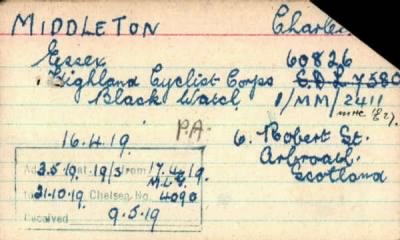 MIDDLETON Charles
Essex 60826
Highland Cyclist Corps E.D.L 7580
Black Watch 1/MM/2411
16.4.19. P.A. 6. Robert St.
Arbroath.
Scotland
3.5.19. 19/3 from 17.4.19.
M.L.G.
21.10.19 Chelsea. No. 4090
Received 9.5.19